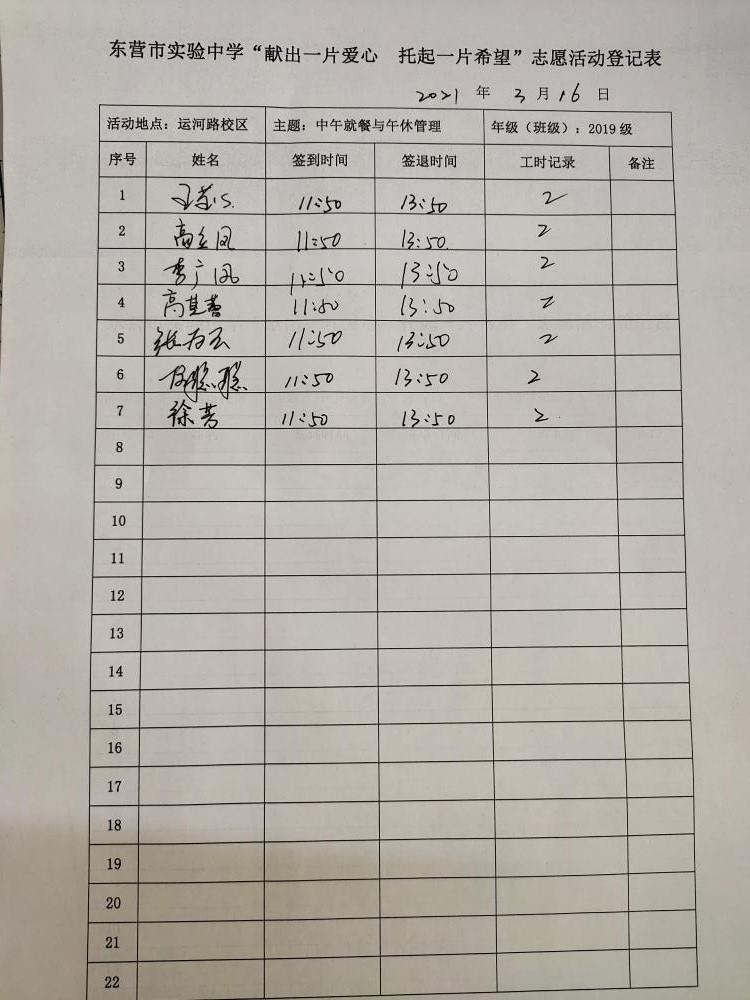 东营市实验中学“献出一片爱心　托起一片希望”志愿活动登记表
2021 年 3 月 16 日
活动地点：运河路校区 主题：中午就餐与午休管理 年级（班级）：2019 级
序号 姓名 签到时间 签退时间 工时记录 备注
1 11:50 13:50 2
2 高立凤 11:50 13:50 2
3 李广凤 11:50 13:50 2
4 高其蕾 11:50 13:50 2
5 11:50 13:50 2
6 11:50 13:50 2
7 徐芳 11:50 13:50 2
8
9
10
11
12
13
14
15
16
17
18
19
20
21
22